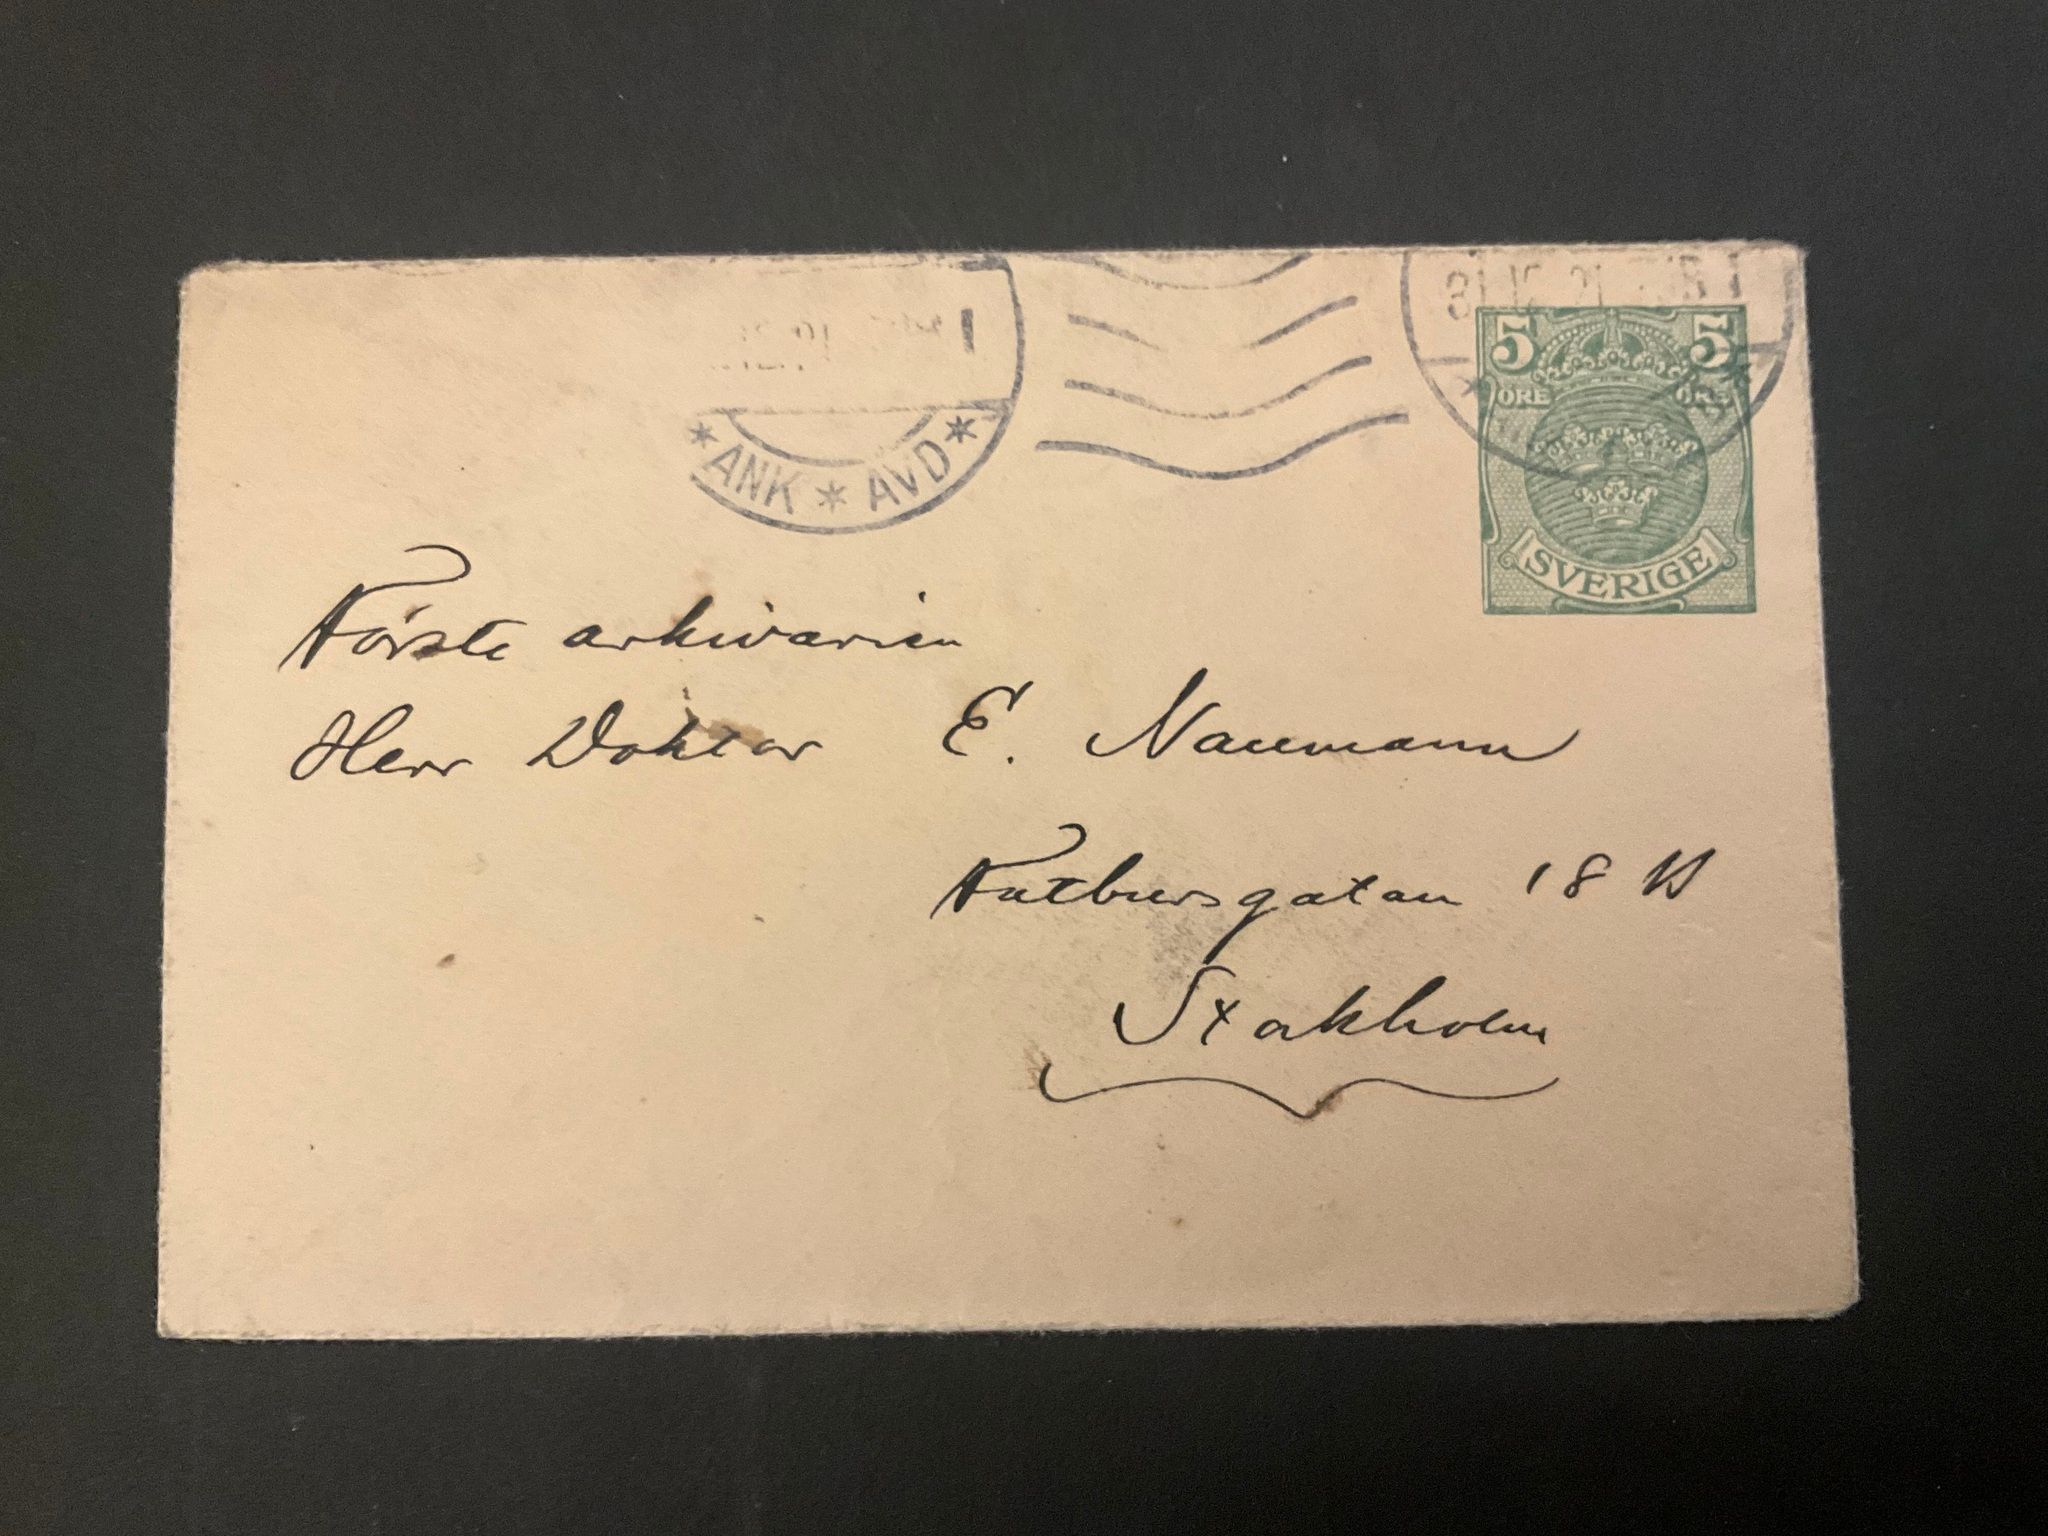 31 12 21
1
*ANK * AVD*
5 5
ÖRE ÖRE
SVERIGE
Förste arkivarien
Herr Doktor E. Naumann
Fatbursgatan 18 B
Stockholm